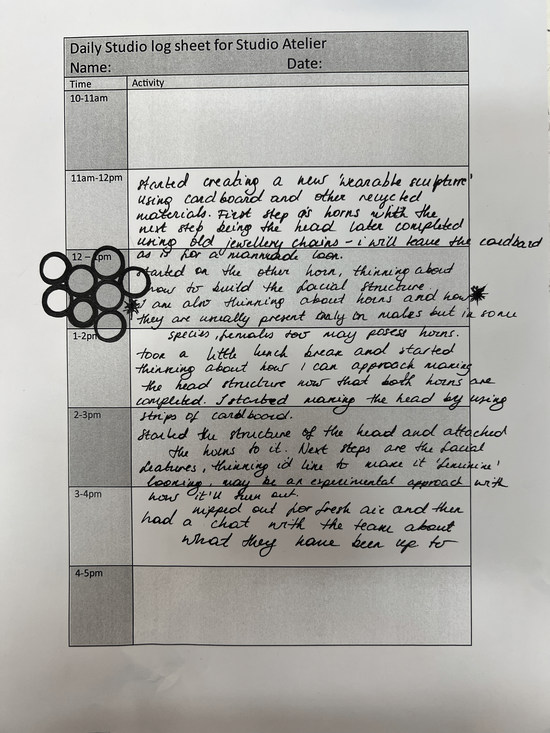 Daily Studio log sheet for Studio Atelier
Name: Date:
Time Activity
10-11am
11am-12pm
started creating a new 'wearable sculpture'
using cardboard and other recycled
materials. First step is horns with the
next step being the head later completed
using old jewellery chains - i will leave the cardboard
12 - 1pm
as is for a manmade look.
started on the other horn, thinning about
how to build the facial structure.
i am also thinning about horns and how
they are usually present only on males but in some
1-2pm
species, females too may posess horns.
took a little lunch break and started
thinning about how i can approach maning
the head structure now that both horns are
completed. I started maning the head by using
2-3pm
strips of cardboard.
started the structure of the head and attached
the horns to it. Next steps are the facial
features, thinning i'd line to mane it 'feminine'
looning, may be an experimental approach with
3-4pm
how it'll turn out.
nipped out for fresh air and then
had a chat with the team about
what they have been up to
4-5pm